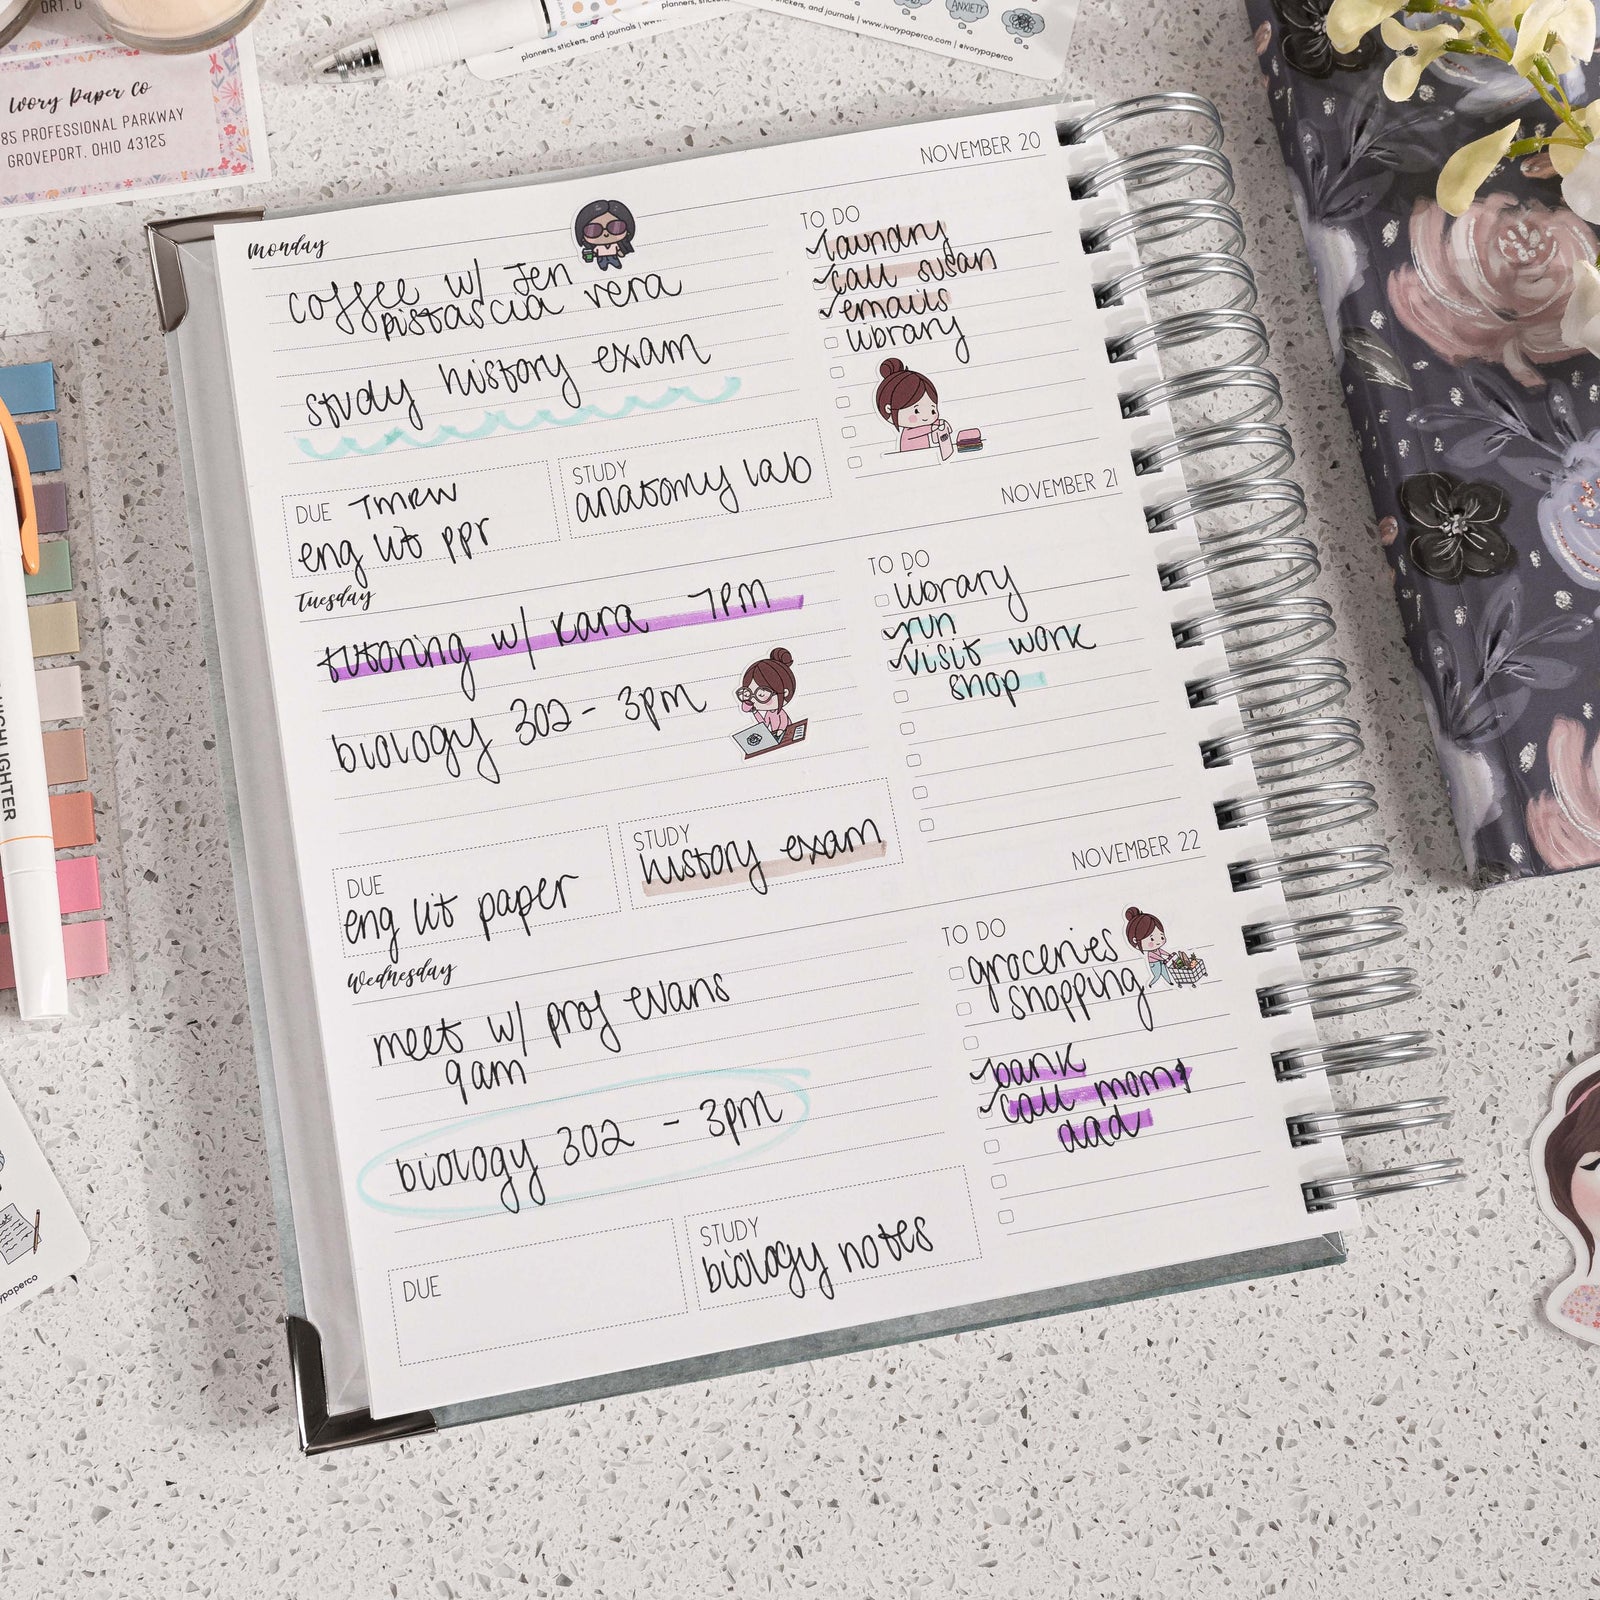 ORT. O
Ivory Paper Co
85 PROFESSIONAL PARKWAY
GROVEPORT, OHIO 43125
planners, stickers, and journals | www
planners, stickers, and journals | www.ivorypaperco.com | @ivorypaperco
ANXIETY
HIGHLIGHTER
NOVEMBER 20
Monday
coffee w/ Jen
pistascia vera
study history exam
DUE TMRW
eng lit ppr
STUDY
anatomy lab
TO DO
laundry
call susan
emails
library
NOVEMBER 21
Tuesday
tutoring w/ Kara 7PM
biology 302 - 3pm
DUE
eng lit paper
STUDY
history exam
TO DO
library
run
visit work
shop
NOVEMBER 22
Wednesday
meet w/ prof evans
9am
biology 302 - 3pm
DUE
STUDY
biology notes
TO DO
groceries
shopping
bank
call mom &
dad
ypaperco